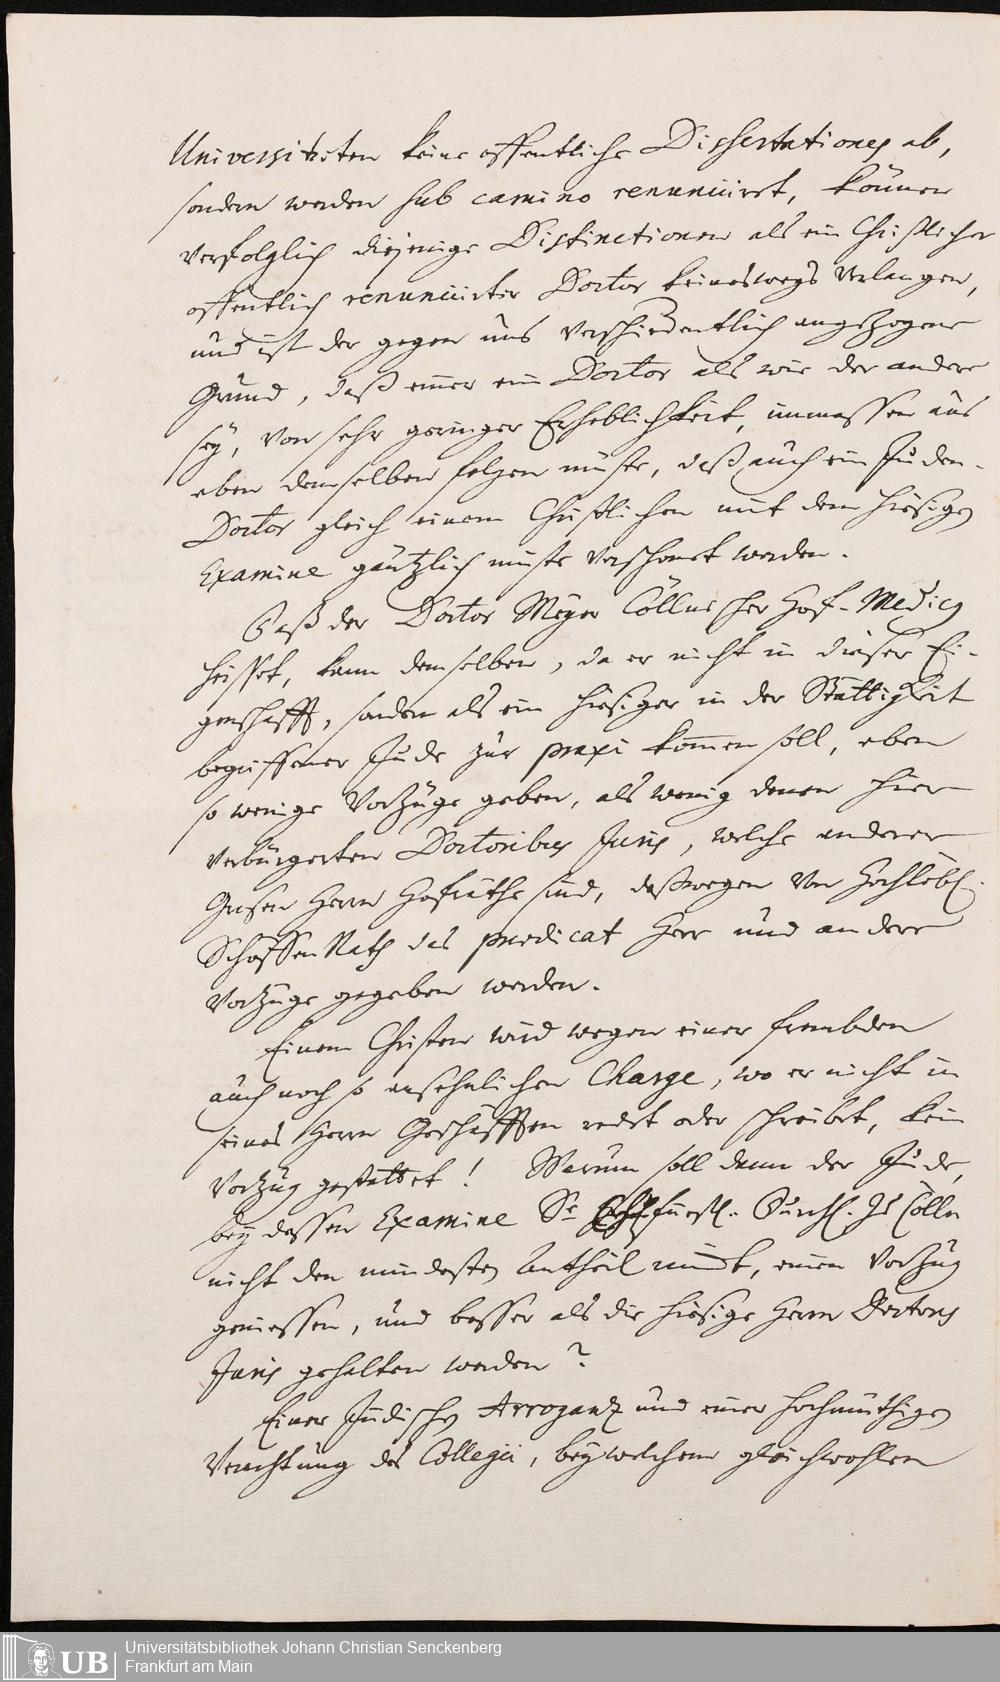 Universitäten keine offentliche Dissertationes ab,
sondern werden sub camino renunciiret, können
verfolglich diejenige Distinctionen als ein Christlicher
offentlich renunciirter Doctor keineswegs verlangen,
und ist der gegen uns verschiedentlich angezogene
Grund, daß einer ein Doctor als wie der andere
seÿ, von sehr geringer Erheblichkeit, immassen aus
eben demselben folgen müste, daß auch ein Juden-
Doctor gleich einem Christlichen mit dem hiesigen
Examine gäntzlich müste verschonet werden.
Daß der Doctor Meyer Cöllnischer Hof-Medicus
heisset, kann demselben, da er nicht in dieser Ei-
genschafft, sondern als ein hiesiger in der Stättigkeit
begriffener Jude zur praxi kommen soll, eben
so wenige Vorzüge geben, als wenig denen hier
verbürgerten Doctoribus Juris, welche anderer
Grosen Herrn Hofräthe sind, deßwegen von Hochlöbl.
Schöffen Rath das praedicat Herr und andere
Vorzüge gegeben werden.
Einem Christen wird wegen einer frembden
auch noch so ansehnlichen Charge, wo er nicht in
seines Herrn Geschäfften redet oder schreibet, kein
Vorzug gestattet! Warum soll dann der Jude,
beÿ dessen Examine Sr. Churfürstl. Durchl. zu Cölln
nicht den mindesten Antheil nimbt, einen Vorzug
geniessen, und besser als die hiesige Herrn Doctores
Juris gehalten werden?
Einer Jüdischen Arroganz und einer hochmüthigen
Verachtung des Collegii, beÿ welchem gleichwohlen
Universitätsbibliothek Johann Christian Senckenberg
Frankfurt am Main
UB